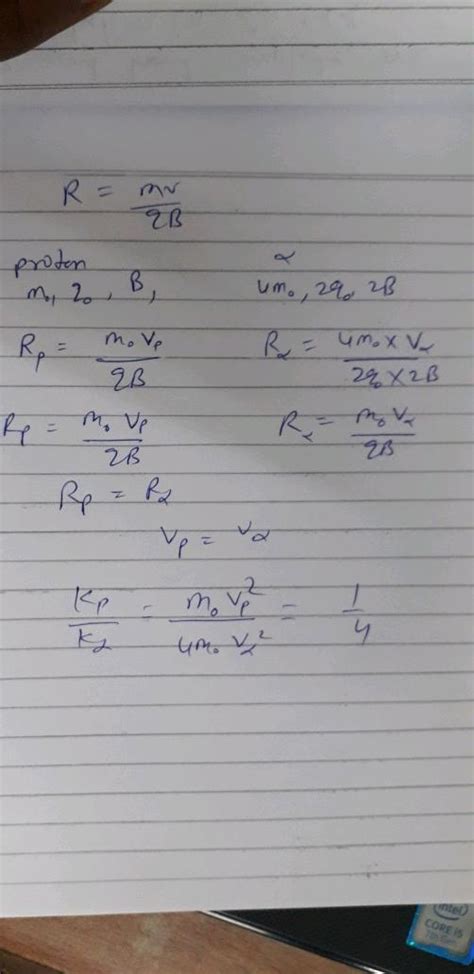 R = mv/qB
proton α
m₀, q₀, B, 4m₀, 2q₀, 2B
Rₚ = m₀vₚ/qB R_α = 4m₀ × v_α/2q₀ × 2B
Rₚ = m₀ vₚ/qB R_α = m₀ v_α/qB
Rₚ = R_α
vₚ = v_α
Kₚ/K_α = m₀ vₚ²/4m₀ v_α² = 1/4
intel
CORE i5